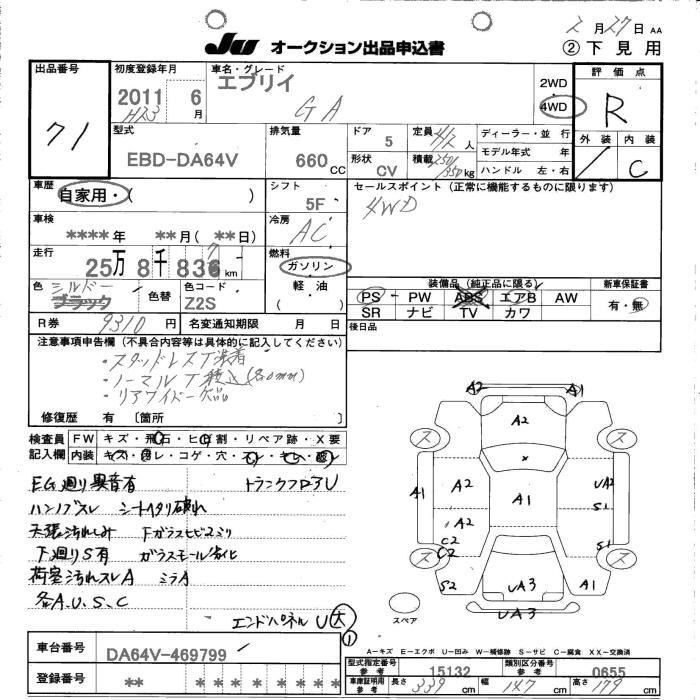 2月27日 AA
JU オークション出品申込書
② 下見用
出品番号
71
初度登録年月
2011 6月
H23
車名・グレード
エブリイ
GA
2WD
4WD
評価点
R
外装 内装
/ C
型式
EBD-DA64V
排気量
660 CC
ドア
5
形状
CV
定員 4/2 人
積載 250/350 kg
ディーラー・並行
モデル年式 年
ハンドル 左・右
車歴
自家用・( )
シフト
5F
セールスポイント(正常に機能するものに限ります)
4WD
車検
**** 年 ** 月(** 日)
冷房
AC
走行
25万8千836km
7
燃料
ガソリン
軽油
( )
色
シルバー
ブラック
色替
色コード
Z2S
装備品(純正品に限る)
PS PW ABS エアB AW
SR ナビ TV カワ
新車保証書
有・無
R券 9310 円
名変通知期限 月 日
後日品
注意事項申告欄(不具合内容等は具体的に記入してください)
・スタッドレスT装着
・ノーマルT積込(80mm)
・リアワイパー欠品
修復歴 有 [箇所 ]
検査員記入欄
FW キズ・飛石・ヒビ割・リペア跡・X要
内装 キズ・コゲ・穴・スレ
EG廻り異音有 トランクフロアU
ハンドルスレ シートヘタリ破れ
天張汚れしみ FガラスヒビSミリ
下廻りS有 ガラスモール劣化
荷室汚れスレA ミラA
各A.U.S.C
エンドパネルU大
①
A2 A1
A2
ス ス
A1 A2 A1 UA2
A2 S1
C2 S1
ス C2 ス
S2 UA3 A1
UA3
スペア
A-キズ E-エクボ U-凹み W-補修跡 S-サビ C-腐食 XX-交換済
車台番号 DA64V-469799
登録番号 ** * * * * * * *
型式指定番号 参考 15132 類別区分番号 参考 0655
車庫証明用 参考 長さ 339 cm 幅 147 cm 高さ 179 cm